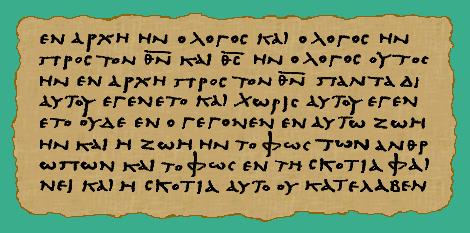 ΕΝ ΑΡΧΗ ΗΝ Ο ΛΟΓΟϹ ΚΑΙ Ο ΛΟΓΟϹ ΗΝ
ΠΡΟϹ ΤΟΝ Θ̅Ν̅ ΚΑΙ Θ̅Ϲ̅ ΗΝ Ο ΛΟΓΟϹ ΟΥΤΟϹ
ΗΝ ΕΝ ΑΡΧΗ ΠΡΟϹ ΤΟΝ Θ̅Ν̅ ΠΑΝΤΑ ΔΙ
ΑΥΤΟΥ ΕΓΕΝΕΤΟ ΚΑΙ ΧΩΡΙϹ ΑΥΤΟΥ ΕΓΕΝ
ΕΤΟ ΟΥΔΕ ΕΝ Ο ΓΕΓΟΝΕΝ ΕΝ ΑΥΤΩ ΖΩΗ
ΗΝ ΚΑΙ Η ΖΩΗ ΗΝ ΤΟ ΦΩϹ ΤΩΝ ΑΝΘΡ
ΩΠΩΝ ΚΑΙ ΤΟ ΦΩϹ ΕΝ ΤΗ ϹΚΟΤΙΑ ΦΑΙ
ΝΕΙ ΚΑΙ Η ϹΚΟΤΙΑ ΑΥΤΟ ΟΥ ΚΑΤΕΛΑΒΕΝ